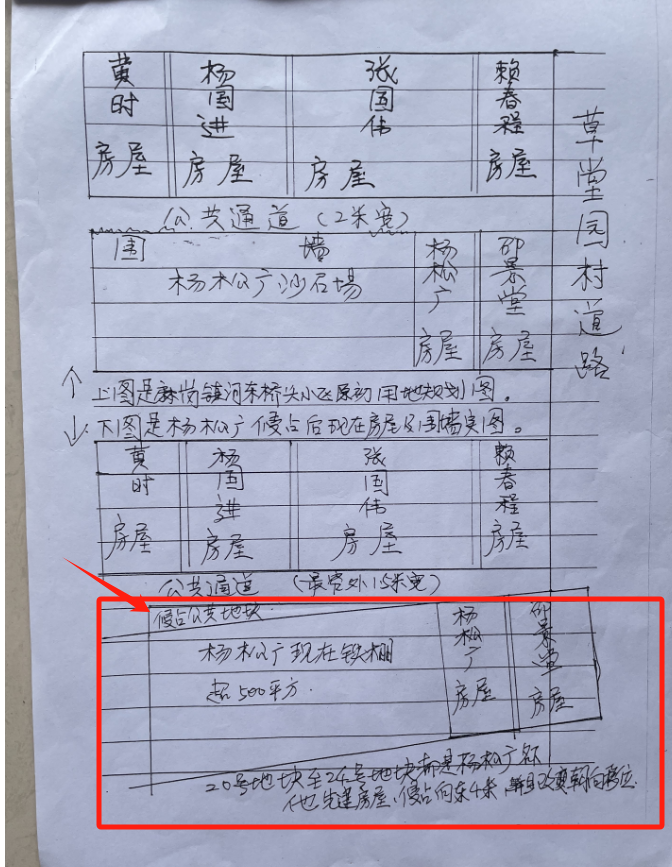 黄时房屋
杨国进房屋
张国伟房屋
赖春程房屋
草堂园村道路
公共通道（2米宽）
围墙
杨松广沙石场
杨松广房屋
邵景堂房屋
↑上图是麻岗镇河东桥头小区原初用地规划图。
↓下图是杨松广侵占后现在房屋及围墙实图。
黄时房屋
杨国进房屋
张国伟房屋
赖春程房屋
公共通道（最宽处15米宽）
侵占公共地块
杨松广现在铁棚
超500平方.
杨松广房屋
邵景堂房屋
20号地块至24号地块都是杨松广名
他先建房屋、侵占向东4米，并且改变朝向移位.